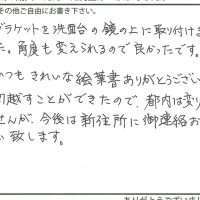 その他ご自由にお書き下さい。
ブラケットを洗面台の鏡の上に取り付けま
た。角度も変えられるので良かったです。
つも きれいな絵葉書ありがとうござい
引越すことができたので、都内は変り
せんが、今後は新住所に御連絡お
い致します。
ありがとうございま